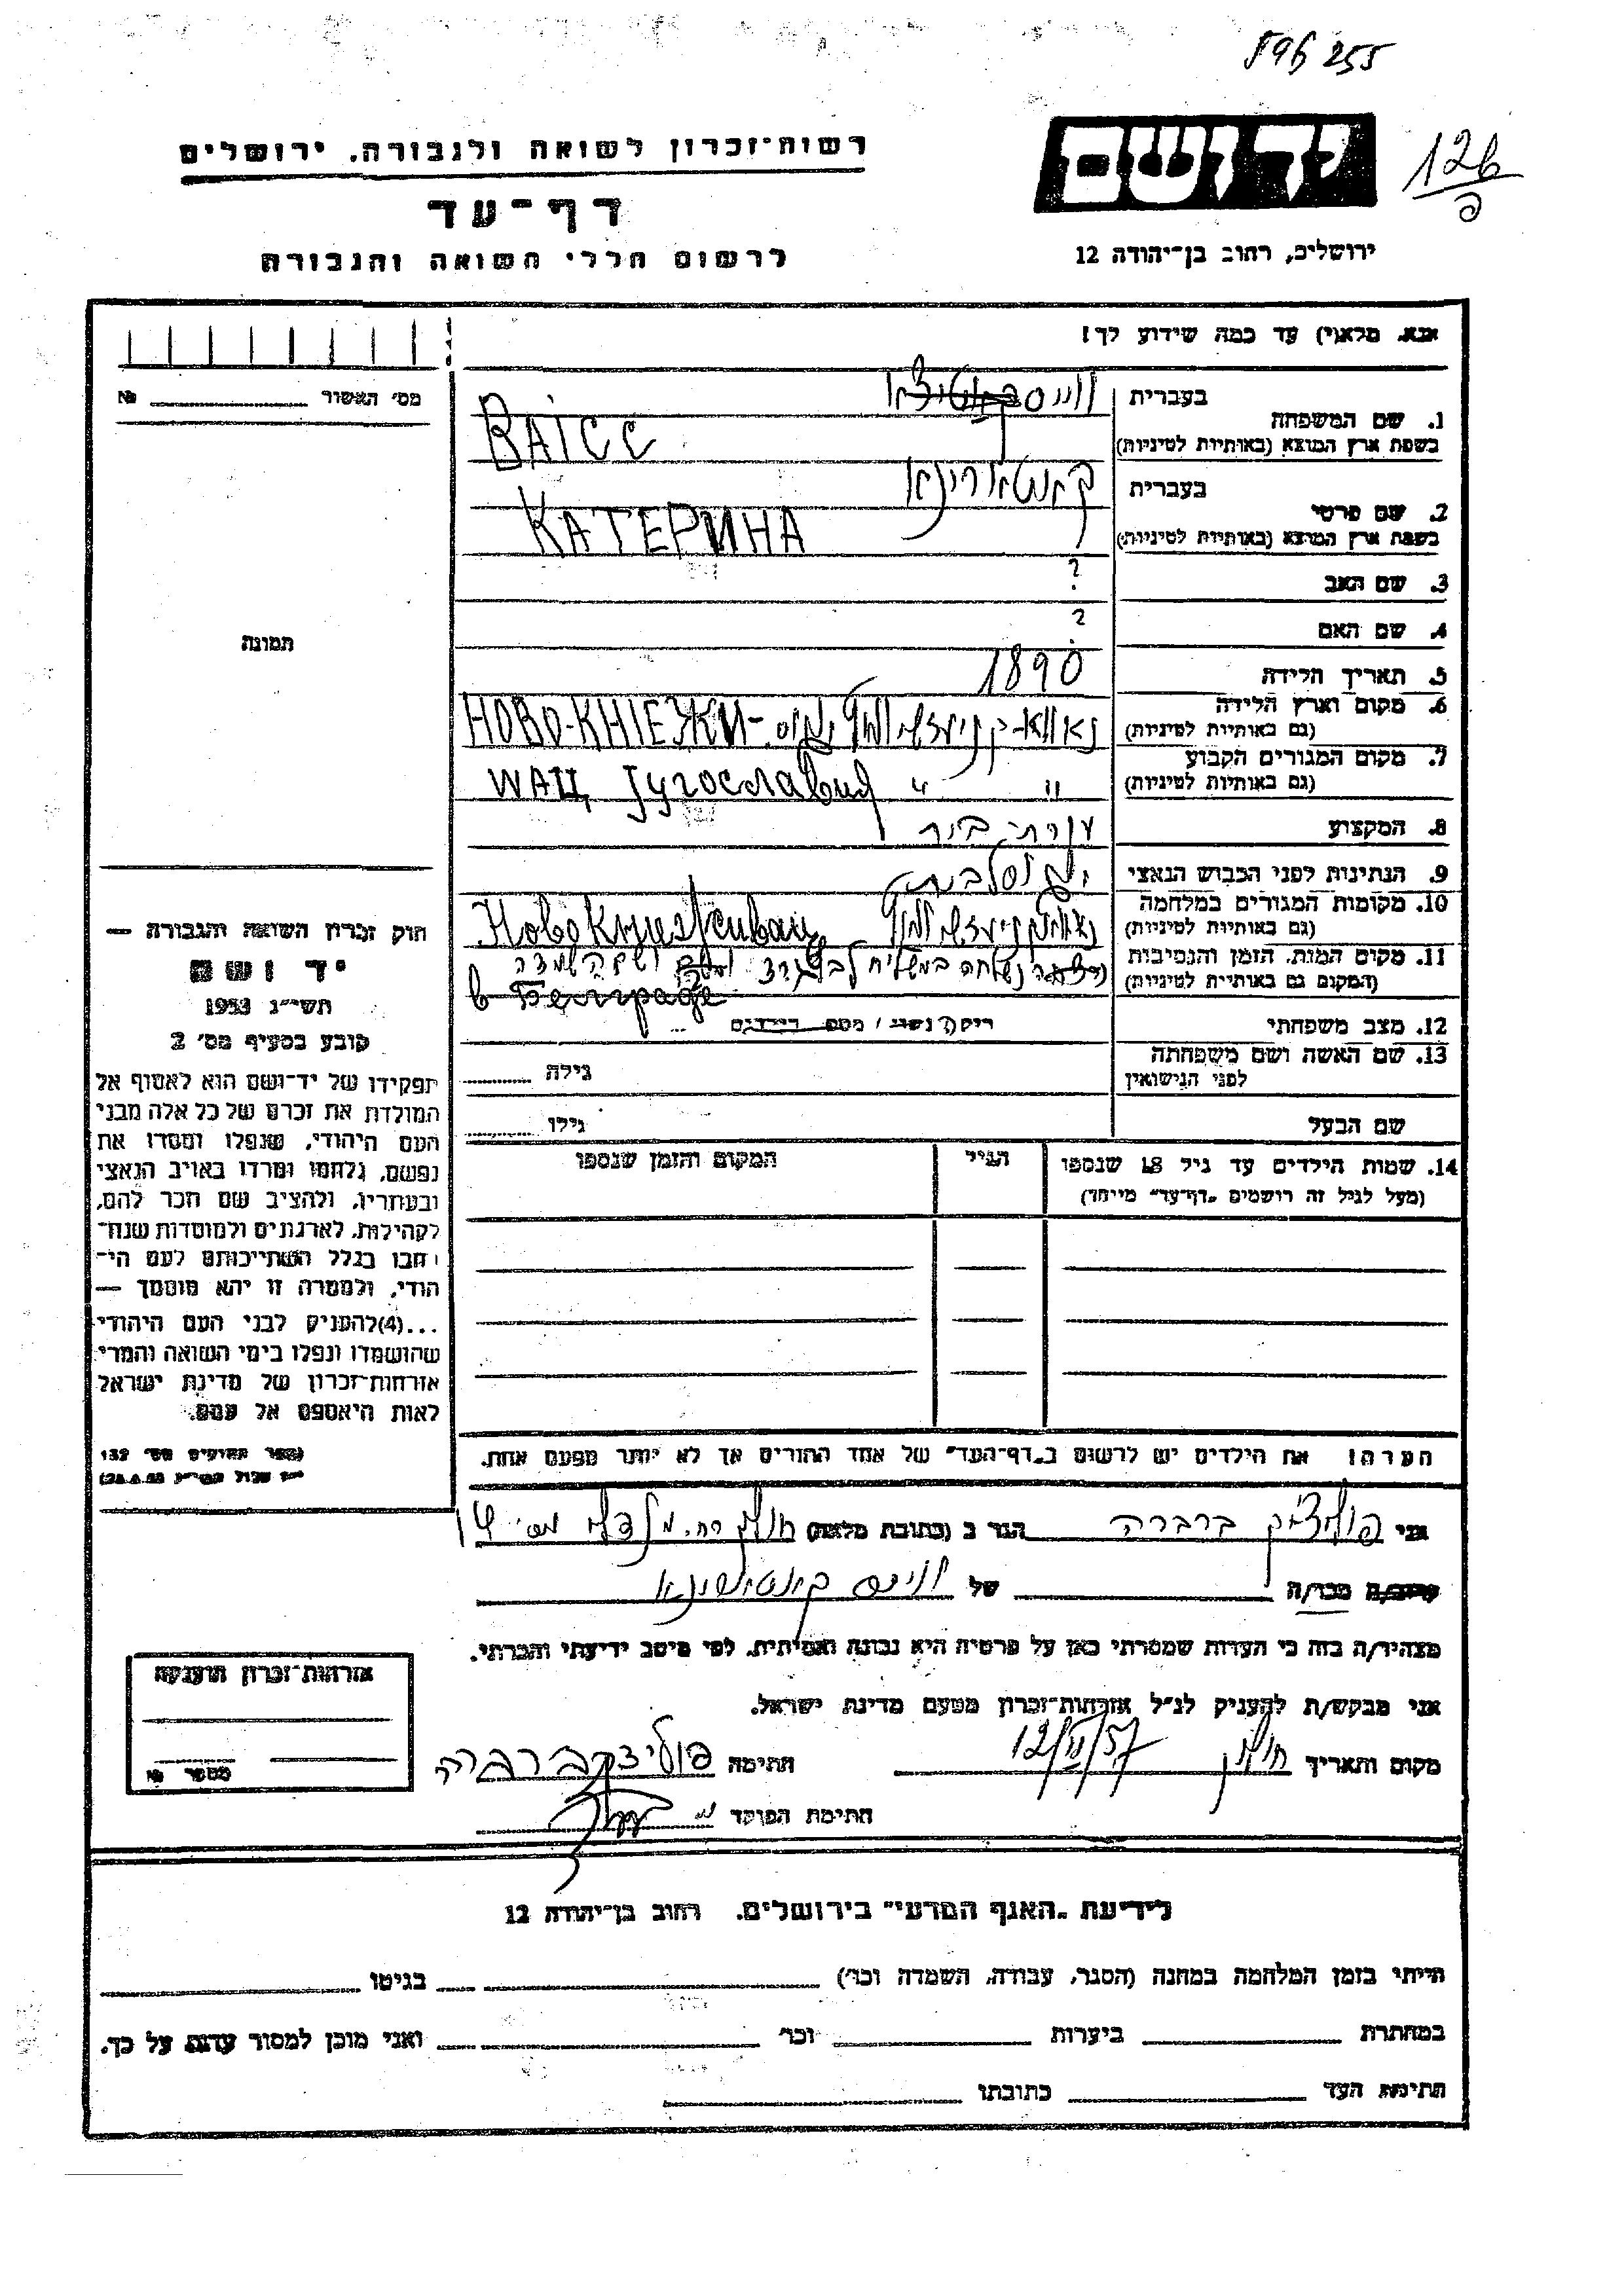 596255
רשות־זכרון לשואה ולגבורה, ירושלים
יד ושם
126
דף־עד
לרשום חללי השואה והגבורה
ירושלים, רחוב בן־יהודה 12
אנא, מלא(י) עד כמה שידוע לך!
מס׳ האשור № 
תמונה
1. שם המשפחה
בעברית
בשפת ארץ המוצא (באותיות לטיניות)
ВАІСС
2. שם פרטי
בעברית
בשפת ארץ המוצא (באותיות לטיניות)
КАТЕРИНА
3. שם האב ?
4. שם האם ?
5. תאריך הלידה 1890
6. מקום וארץ הלידה
(גם באותיות לטיניות)
НОВО-КНІЕЗКИ-
7. מקום המגורים הקבוע " "
(גם באותיות לטיניות)
8. המקצוע עקרת־בית
9. הנתינות לפני הכבוש הנאצי יוגוסלבית
10. מקומות המגורים במלחמה
(גם באותיות לטיניות)
11. מקום המות, הזמן והנסיבות
(המקום גם באותיות לטיניות)
נשלחה במשלוח
в Белграде
12. מצב משפחתי
13. שם האשה ושם משפחתה
לפני הנישואין
גילה
שם הבעל גילו
14. שמות הילדים עד גיל 18 שנספו הגיל המקום והזמן שנספו
(מעל לגיל זה רושמים „דף־עד״ מיוחד)
הערה: את הילדים יש לרשום ב„דף־העד״ של אחד ההורים אך לא יותר מפעם אחת.
חוק זכרון השואה והגבורה —
יד ושם
תשי״ג 1953
קובע בסעיף מס׳ 2
תפקידו של יד־ושם הוא לאסוף אל
המולדת את זכרם של כל אלה מבני
העם היהודי, שנפלו ומסרו את
נפשם, נלחמו ומרדו באויב הנאצי
ובעוזריו, ולהציב שם וזכר להם,
לקהילות, לארגונים ולמוסדות שנח־
רבו בגלל השתייכותם לעם הי־
הודי, ולמטרה זו יהא מוסמך —
...(4) להעניק לבני העם היהודי
שהושמדו ונפלו בימי השואה והמרי
אזרחות־זכרון של מדינת ישראל
לאות היאספם אל עמם.
(ספר החוקים מס׳ 132
אני פוליצק ברברה הגר ב (כתובת מלאה) חולון רח.
קרוב/ה מכר/ה של וייס
מצהיר/ה בזה כי העדות שמסרתי כאן על פרטיה היא נכונה ואמיתית, לפי מיטב ידיעתי והכרתי.
אני מבקש/ת להעניק לנ״ל אזרחות־זכרון מטעם מדינת ישראל.
מקום ותאריך חולון 12/II/57 חתימה פוליצק ברברה
חתימת הפוקד
אזרחות־זכרון הוענקה
מספר №
לידיעת „האגף המדעי״ בירושלים. רחוב בן־יהודה 12
הייתי בזמן המלחמה במחנה (הסגר, עבודה, השמדה וכו׳) בגיטו
במחתרת ביערות וכו׳ ואני מוכן למסור עדות על כך.
חתימת העד כתובתו